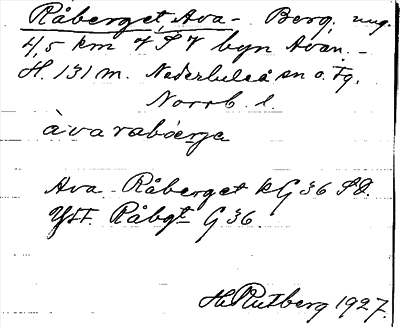 Råberget, Ava- Berg, ung.
4,5 km V S V byn Avan. -
H. 131 m. Nederluleå sn o. Fg.
Norrb. l.
àvarabǻerja
Ava-Råberget kG 36 S.O.
Råbgt G 36.
H. Rutberg 1927.